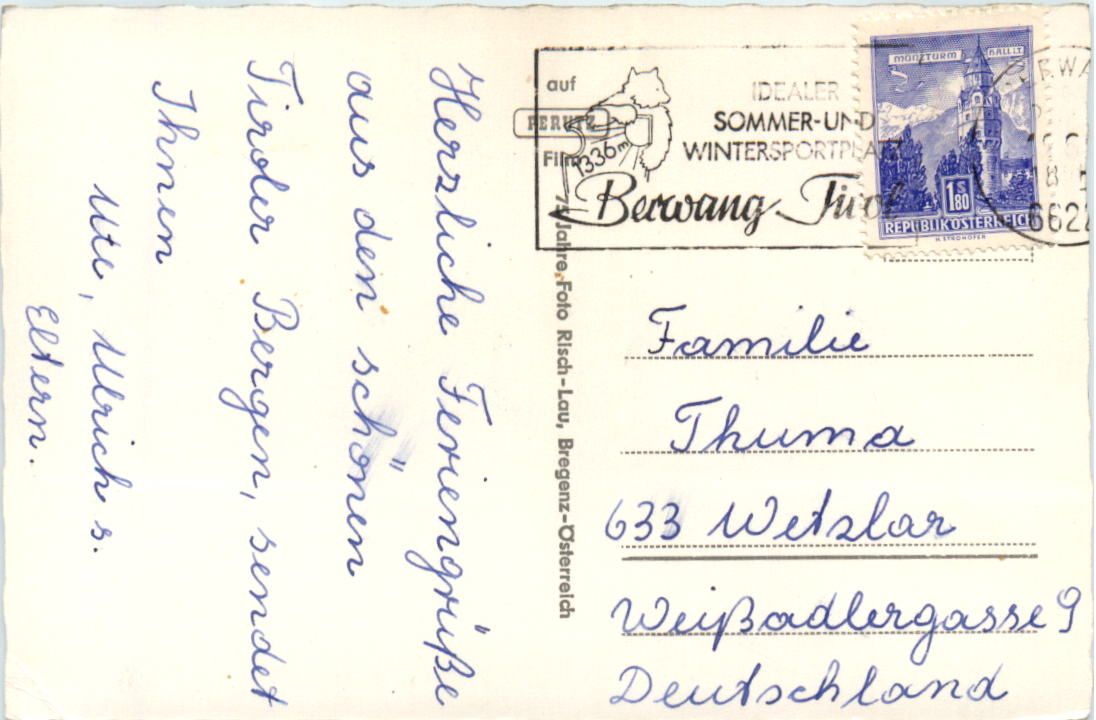 Herzliche Feriengrüße
aus den schönen
Tiroler Bergen, sendet
Ihnen
Ute, Ulrich s.
Eltern.
auf
PERUTZ
Film
75 Jahre Foto Risch-Lau, Bregenz-Österreich
1336m
IDEALER
SOMMER-UND
WINTERSPORTPLATZ
Berwang Tirol
MÜNZTURM HALL I.T.
1 S 80
REPUBLIK ÖSTERREICH
H. STROHOFER
6622
Familie
Thuma
633 Wetzlar
Weißadlergasse 9
Deutschland